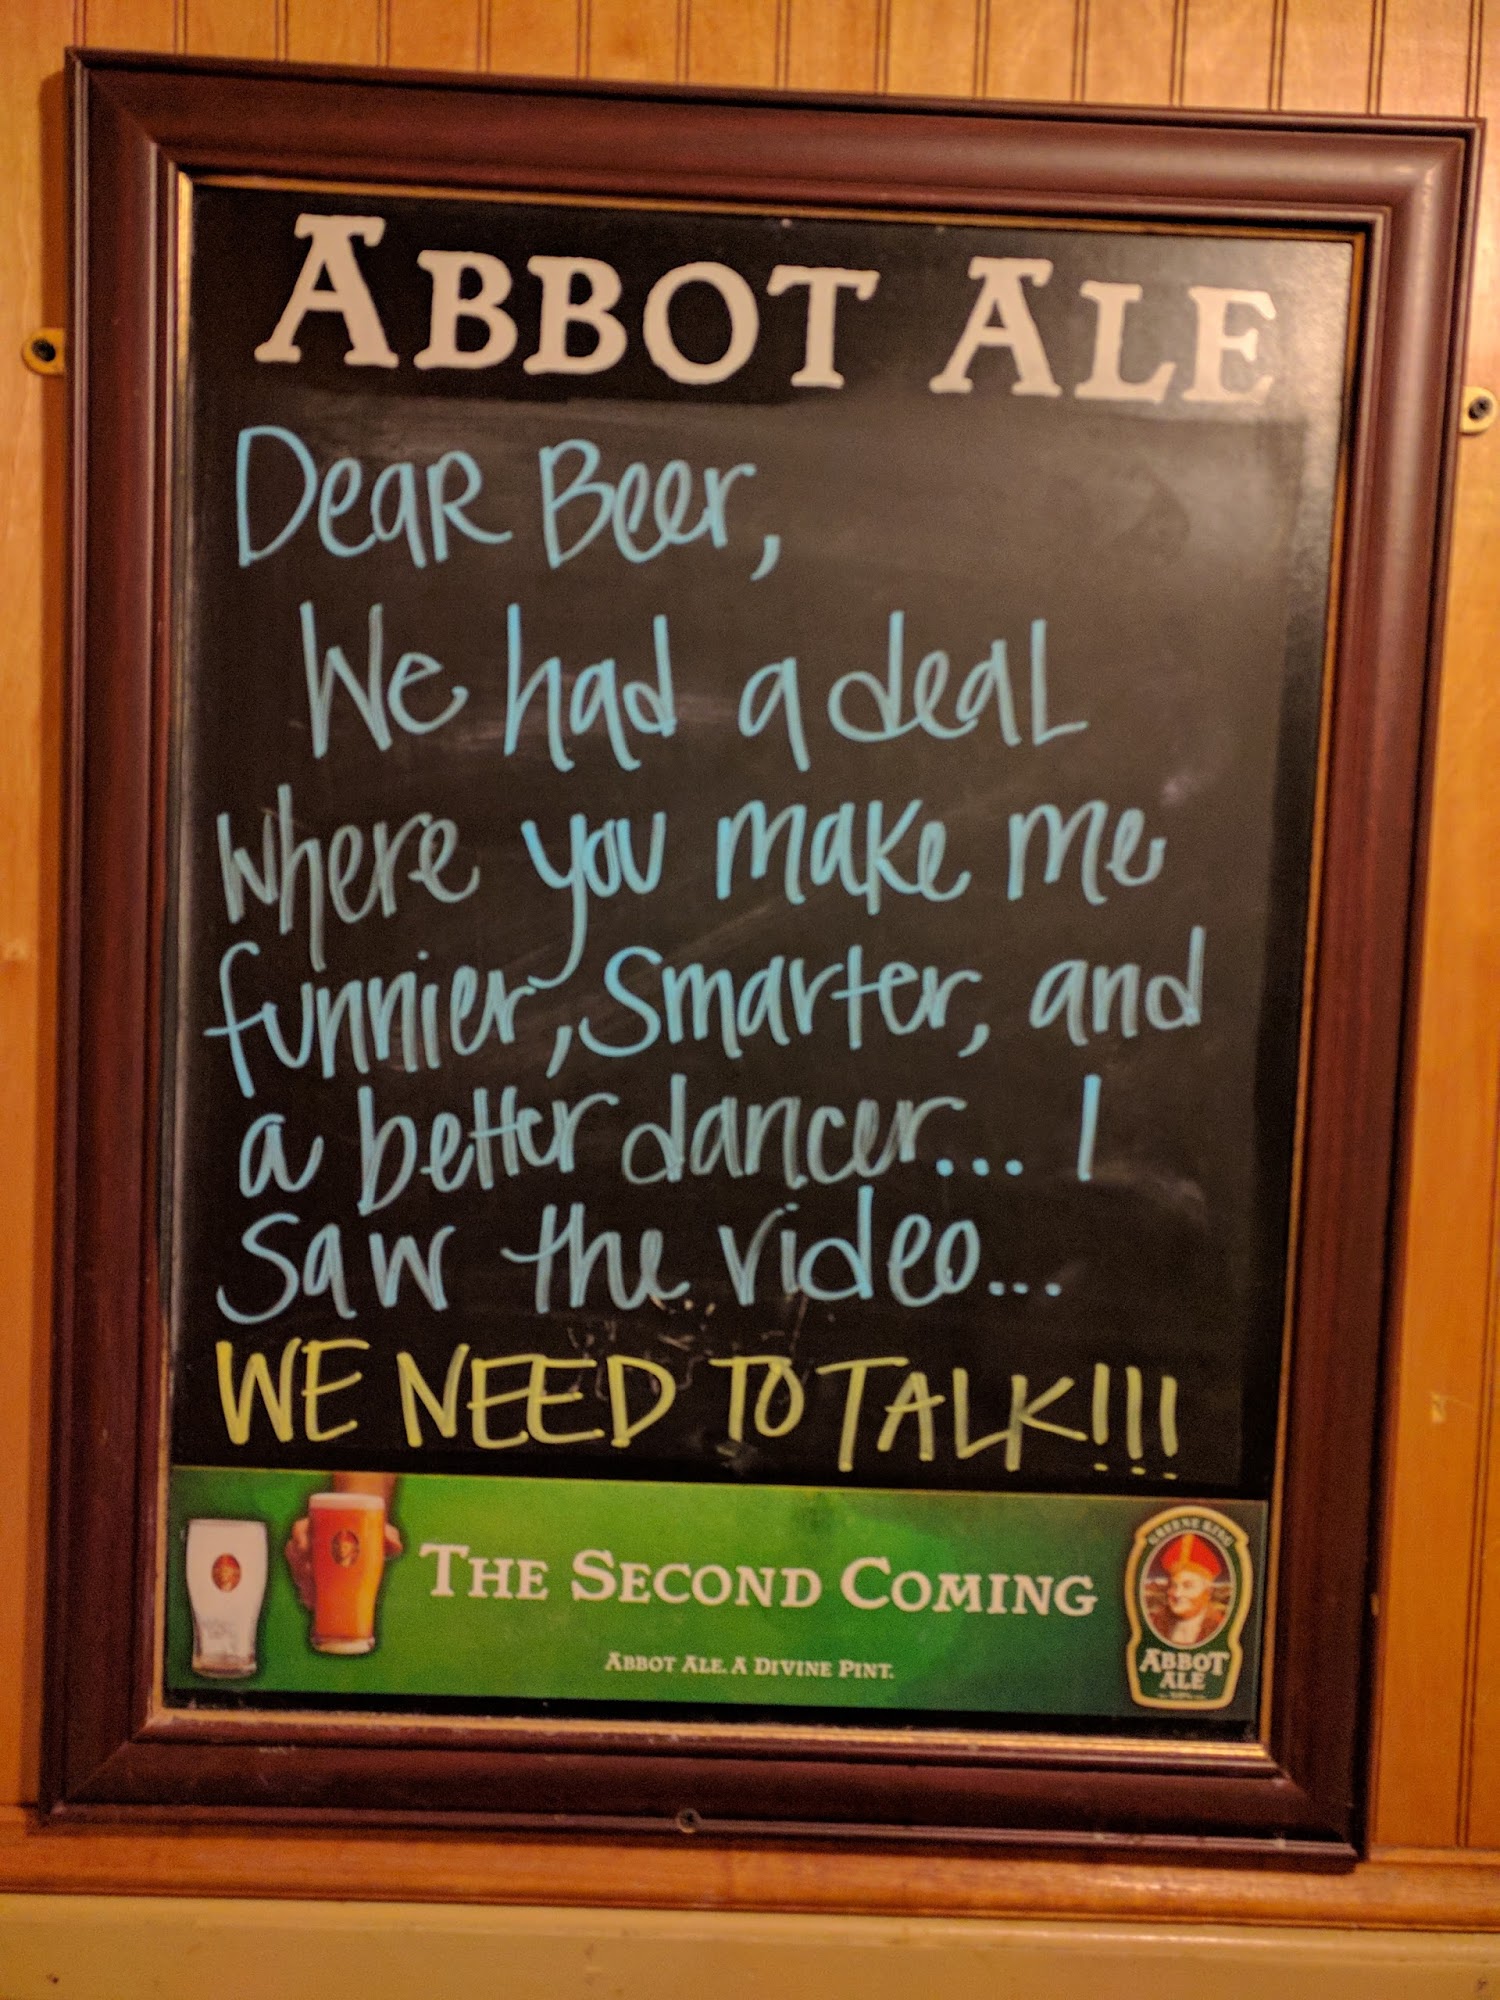 ABBOT ALE
Dear Beer,
We had a deal
where you make me
funnier, smarter, and
a better dancer... I
saw the video...
WE NEED TO TALK!!!
THE SECOND COMING
ABBOT ALE. A DIVINE PINT.
GREENE KING
ABBOT
ALE